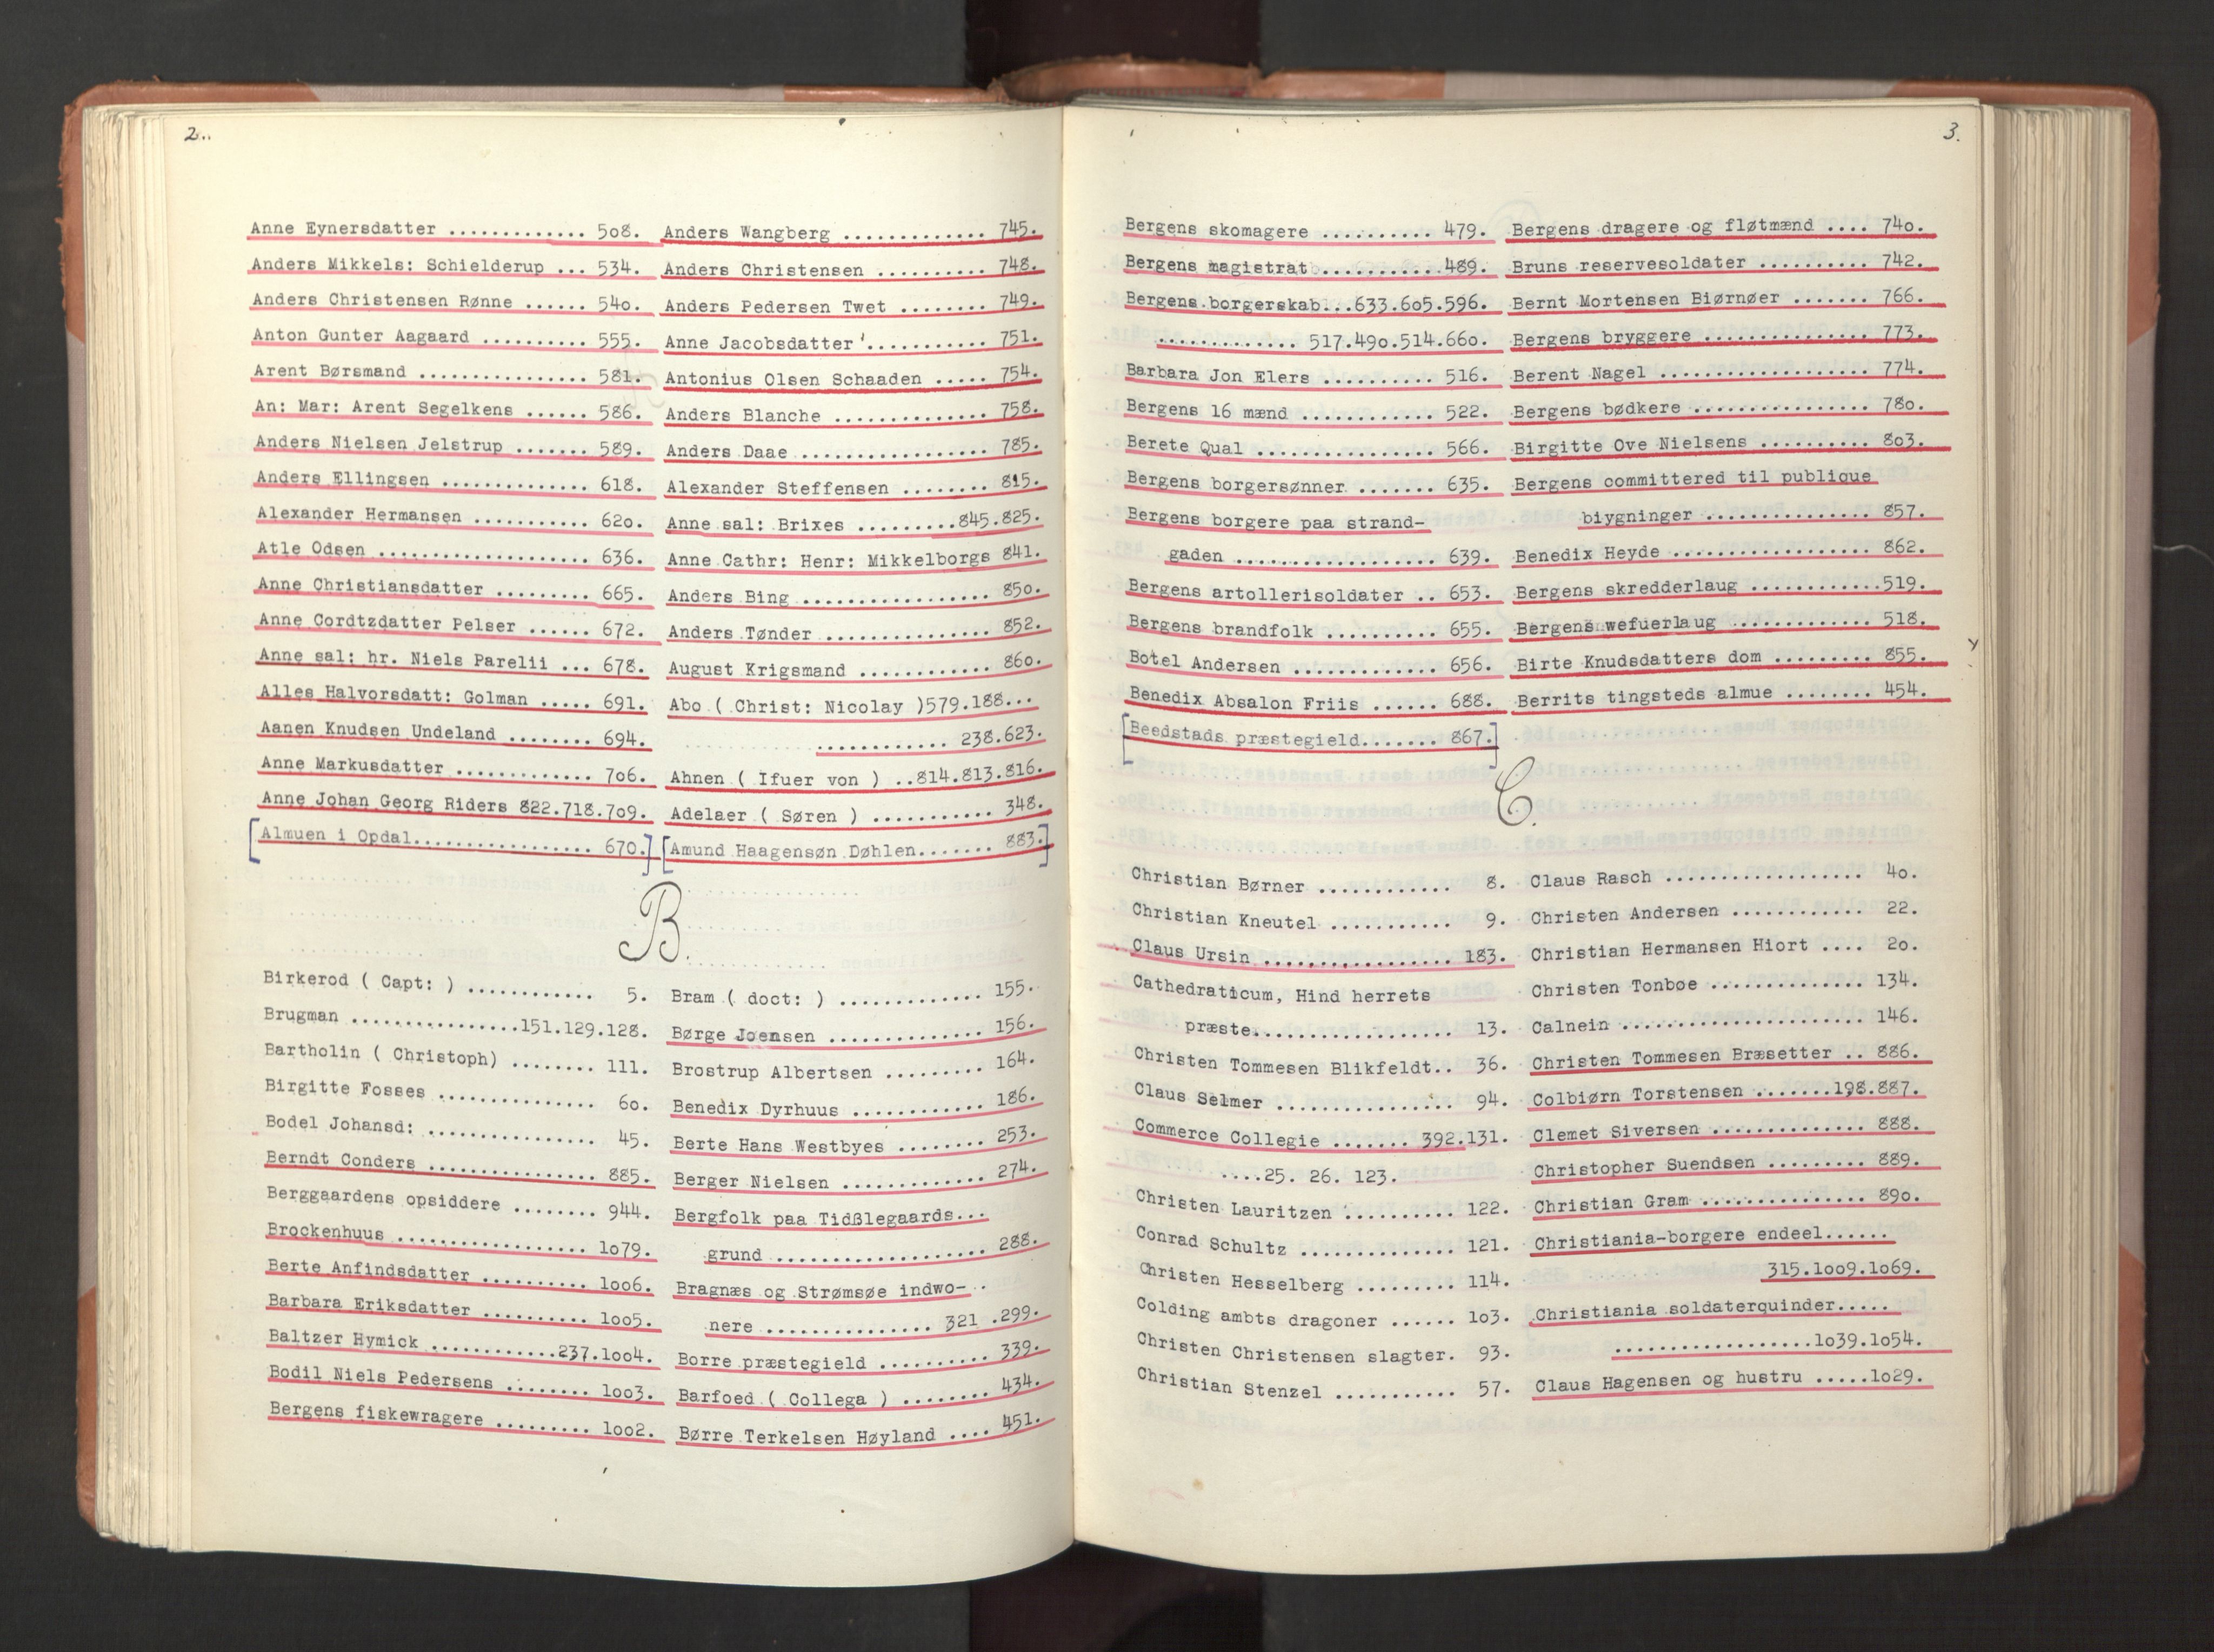 2..
Anne Eynersdatter ............. 5o8.
Anders Mikkels: Schielderup ... 534.
Anders Christensen Rønne ...... 54o.
Anton Gunter Aagaard .......... 555.
Arent Børsmand ................ 581.
An: Mar: Arent Segelkens ...... 586.
Anders Nielsen Jelstrup ....... 589.
Anders Ellingsen .............. 618.
Alexander Hermansen ........... 62o.
Atle Odsen .................... 636.
Anne Christiansdatter ......... 665.
Anne Cordtzdatter Pelser ...... 672.
Anne sal: hr. Niels Parelii ... 678.
Alles Halvorsdatt: Golman ..... 691.
Aanen Knudsen Undeland ........ 694.
Anne Markusdatter ............. 7o6.
Anne Johan Georg Riders 822.718.7o9.
[Almuen i Opdal................ 67o.]
Anders Wangberg .............. 745.
Anders Christensen ........... 748.
Anders Pedersen Twet ......... 749.
Anne Jacobsdatter ............ 751.
Antonius Olsen Schaaden ...... 754.
Anders Blanche ............... 758.
Anders Daae .................. 785.
Alexander Steffensen ......... 815.
Anne sal: Brixes .........845.825.
Anne Cathr: Henr: Mikkelborgs 841.
Anders Bing .................. 85o.
Anders Tønder ................ 852.
August Krigsmand ............. 86o.
Abo ( Christ: Nicolay )579.188...
............ 238.623.
Ahnen ( Ifuer von ) ..814.813.816.
Adelaer ( Søren ) ............ 348.
[Amund Haagensøn Døhlen....... 883.]
B.
Birkerod ( Capt: ) ............ 5.
Brugman ................151.129.128.
Bartholin ( Christoph) ........ 111.
Birgitte Fosses ............... 6o.
Bodel Johansd: ................ 45.
Berndt Conders ................ 885.
Berggaardens opsiddere ........ 944.
Brockenhuus .................. 1o79.
Berte Anfindsdatter .......... 1oo6.
Barbara Eriksdatter .......... 1oo5.
Baltzer Hymick ............237.1oo4.
Bodil Niels Pedersens ........ 1oo3.
Bergens fiskewragere ......... 1oo2.
Bram ( doct: ) .............. 155.
Børge Joensen ............... 156.
Brostrup Albertsen .......... 164.
Benedix Dyrhuus ............. 186.
Berte Hans Westbyes ......... 253.
Berger Nielsen .............. 274.
Bergfolk paa Tidßlegaards...
grund .................... 288.
Bragnæs og Strømsøe indwo-
nere ............... 321 .299.
Borre præstegield ........... 339.
Barfoed ( Collega ) ......... 434.
Børre Terkelsen Høyland ..... 451.
3.
Bergens skomagere .......... 479.
Bergens magistrat...........489.
Bergens borgerskab...633.6o5.596.
............. 517.49o.514.66o.
Barbara Jon Elers .......... 516.
Bergens 16 mænd ............ 522.
Berete Qual ................ 566.
Bergens borgersønner ....... 635.
Bergens borgere paa strand-
gaden ................... 639.
Bergens artollerisoldater .. 653.
Bergens brandfolk .......... 655.
Botel Andersen ............. 656.
Benedix Absalon Friis ...... 688.
[Beedstads præstegield....... 867.]
Bergens dragere og fløtmænd .... 74o.
Bruns reservesoldater .......... 742.
Bernt Mortensen Biørnøer ....... 766.
Bergens bryggere ............... 773.
Berent Nagel ................... 774.
Bergens bødkere ................ 78o.
Birgitte Ove Nielsens .......... 8o3.
Bergens committered til publique
biygninger ............... 857.
Benedix Heyde .................. 862.
Bergens skredderlaug ............519.
Bergens wefuerlaug ............. 518.
Birte Knudsdatters dom ......... 855.
Berrits tingsteds almue ........ 454.
C.
Christian Børner ............ 8.
Christian Kneutel ........... 9.
Claus Ursin ................. 183.
Cathedraticum, Hind herrets
præste.................. 13.
Christen Tommesen Blikfeldt.. 36.
Claus Selmer ................ 94.
Commerce Collegie ....... 392.131.
....25. 26. 123.
Christen Lauritzen .......... 122.
Conrad Schultz .............. 121.
Christen Hesselberg ......... 114.
Colding ambts dragoner ...... 1o3.
Christen Christensen slagter. 93.
Christian Stenzel ........... 57.
Claus Rasch .................. 4o.
Christen Andersen ............ 22.
Christian Hermansen Hiort .... 2o.
Christen Tonbøe .............. 134.
Calnein ...................... 146.
Christen Tommesen Bræsetter .. 886.
Colbiørn Torstensen .......198.887.
Clemet Siversen .............. 888.
Christopher Suendsen ......... 889.
Christian Gram ............... 89o.
Christiania-borgere endeel......
315.1oo9.1o69.
Christiania soldaterquinder.....
..................1o39.1o54.
Claus Hagensen og hustru .....1o29.